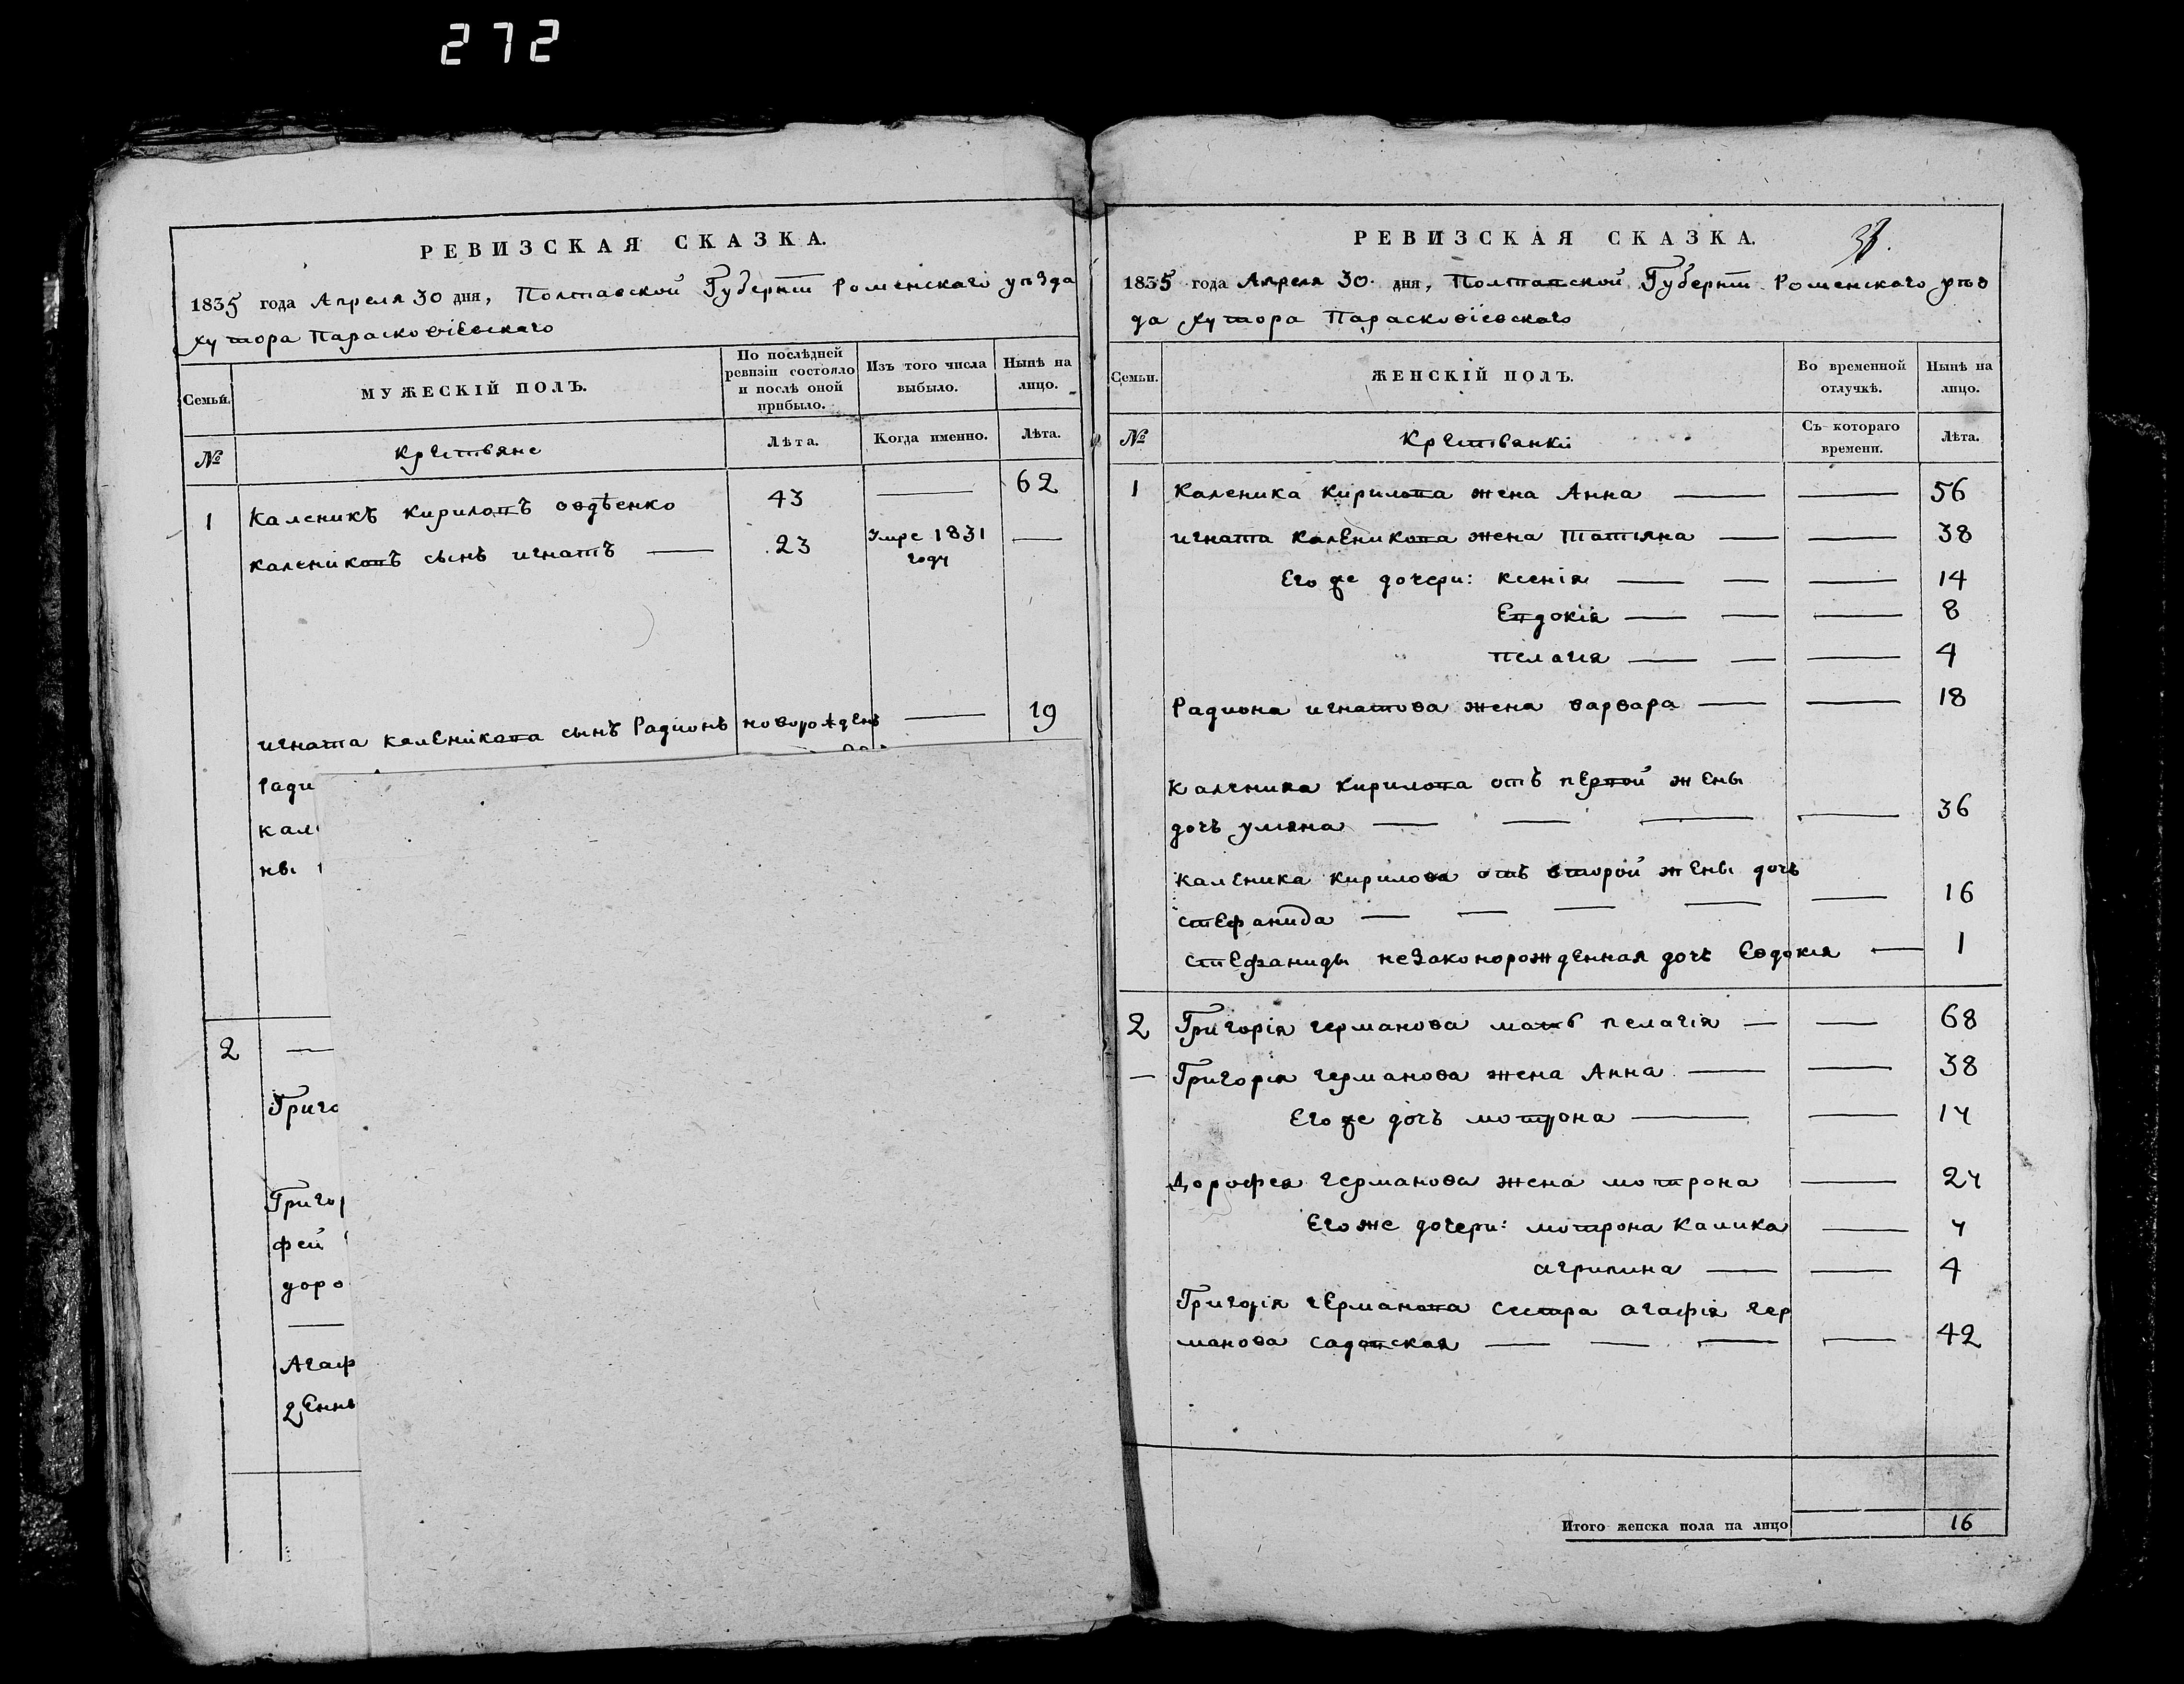 272
РЕВИЗСКАЯ СКАЗКА.
1835 года Апреля 30 дня, Полтавской Губернiи Роменскаго уѣзда
хутора Парасковiевскаго
Семьи.
МУЖЕСКІЙ ПОЛЪ.
По послѣдней ревизіи состояло и послѣ оной прибыло.
Изъ того числа выбыло.
Нынѣ на лицо.
№
Крестьяне
Лѣта.
Когда именно.
Лѣта.
1 Каленикъ Кириловъ Овдѣенко 43 — 62
Калениковъ сынъ Игнатъ — 23 Умре 1831 году —
Игната Каленикова сынъ Радионъ новорожденъ — 19
Ради
Кал
ны
2 —
Григо
Григор
фей
доро
—
Агаф
РЕВИЗСКАЯ СКАЗКА.
1835 года Апреля 30 дня, Полтавской Губернiи Роменскаго уѣз
да хутора Парасковiевскаго
Семьи.
ЖЕНСКІЙ ПОЛЪ.
Во временной отлучкѣ.
Нынѣ на лицо.
№
Крестьянки
Съ котораго времени.
Лѣта.
1 Каленика Кирилова жена Анна — — 56
Игната Каленикова жена Татiяна — — 38
Его же дочери: Ксенiя — — — 14
Евдокiя — — — 8
Пелагiя — — — 4
Радиона Игнатова жена Варвара — — 18
Каленика Кирилова отъ первой жены
дочь Уляна — — — — 36
Каленика Кирилова отъ второй жены дочь
Стефанида — — — — — 16
Стефаниды незаконорожденная дочь Евдокiя — 1
2 Григорiя Германова мать Пелагiя — — 68
— Григорiя Германова жена Анна — — 38
Его же дочь Мотрона — — 14
Дорофея Германова жена Мотрона — 24
Его же дочери: Мотрона Калика — 4
Агрипина — — 4
Григорiя Германова сестра Агафiя Гер
манова Садовская — — — — 42
Итого женска пола на лицо 16